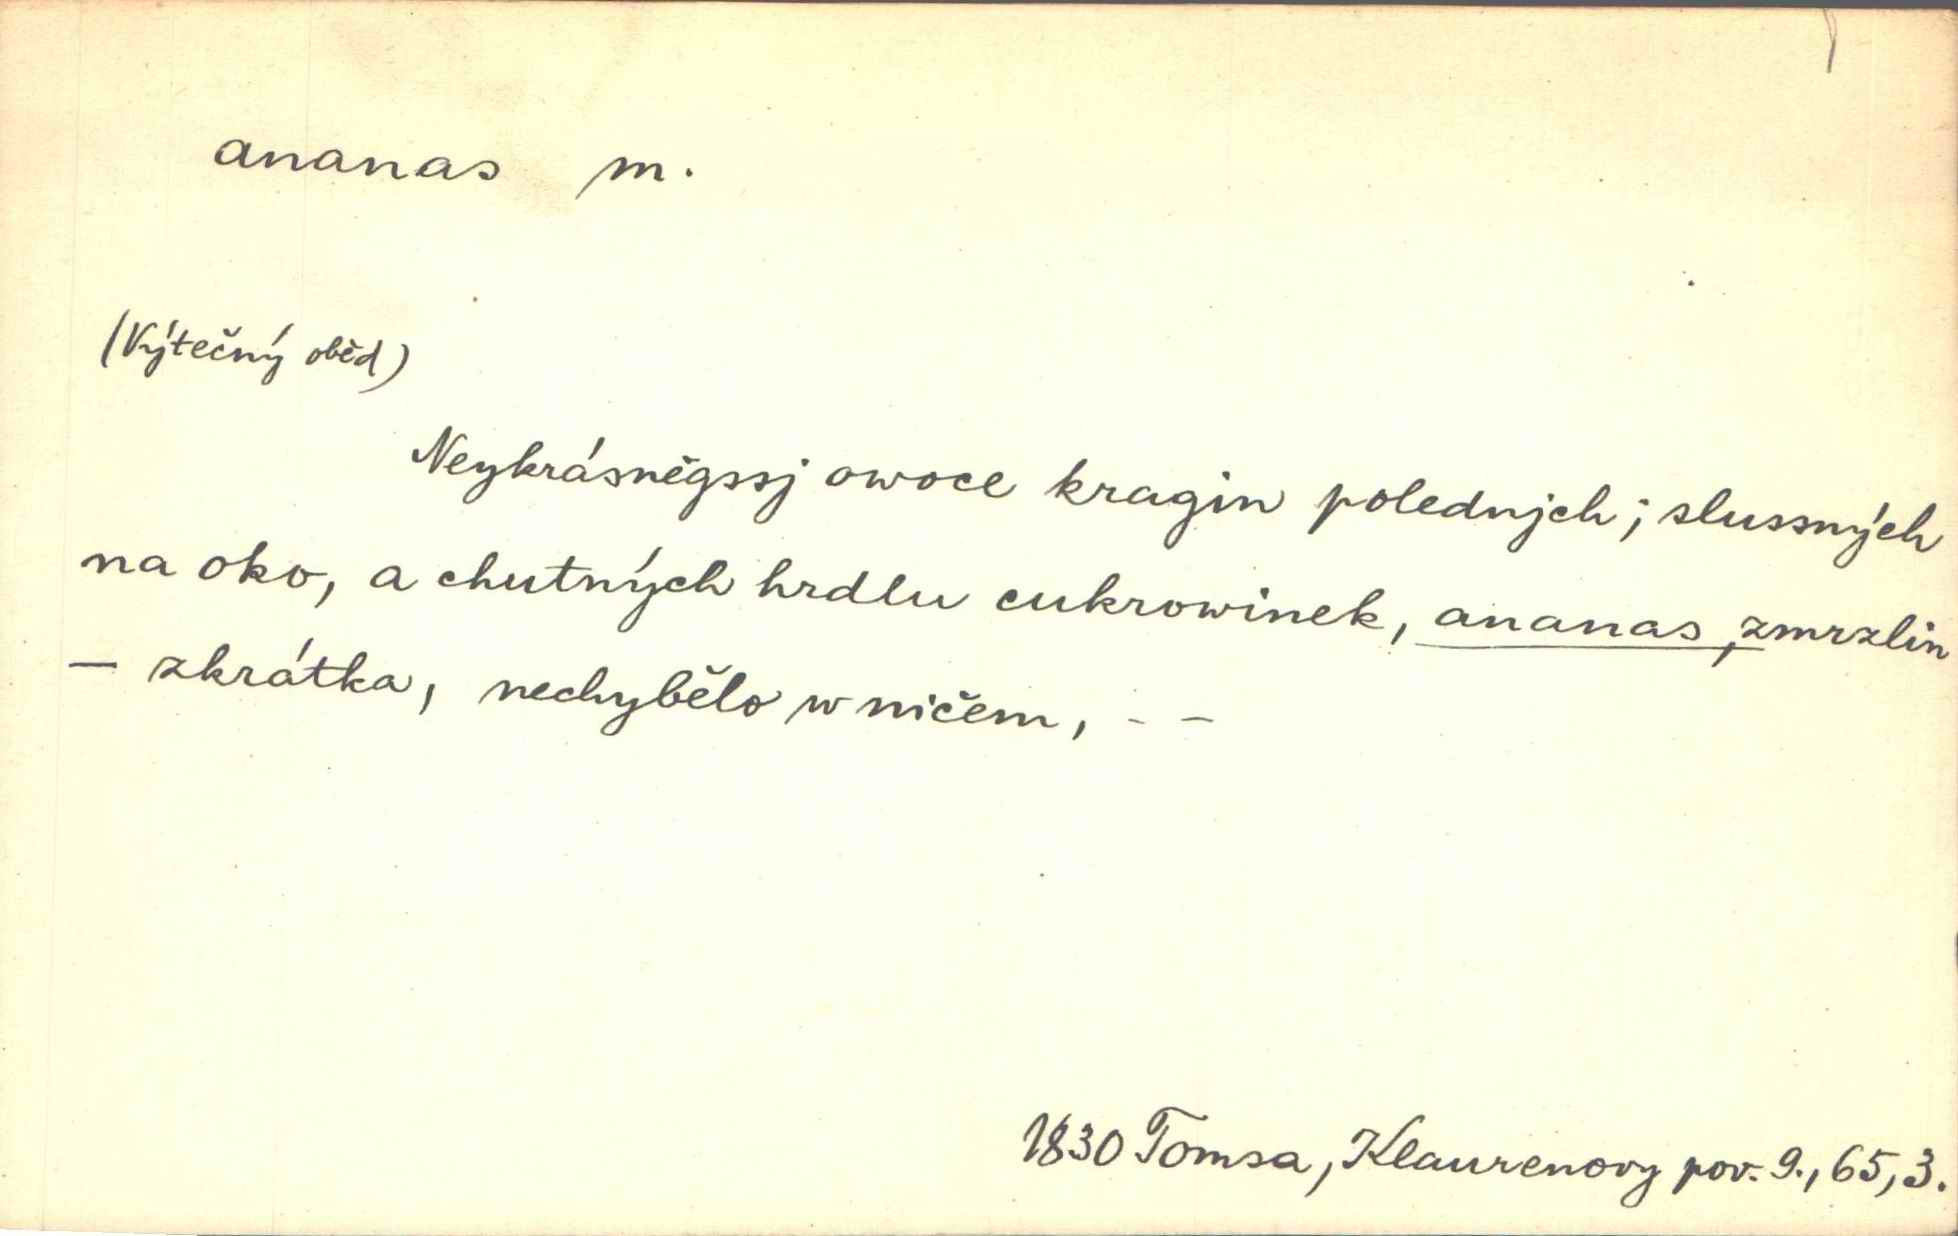 ananas m.
(Výtečný oběd)
Neykrásněgssj owoce kragin polednjch; slussných
na oko, a chutných hrdlu cukrowinek, ananas, zmrzlin
— zkrátka, nechybělo w ničem, - -
1830 Tomsa, Klaurenovy pov. 9., 65, 3.